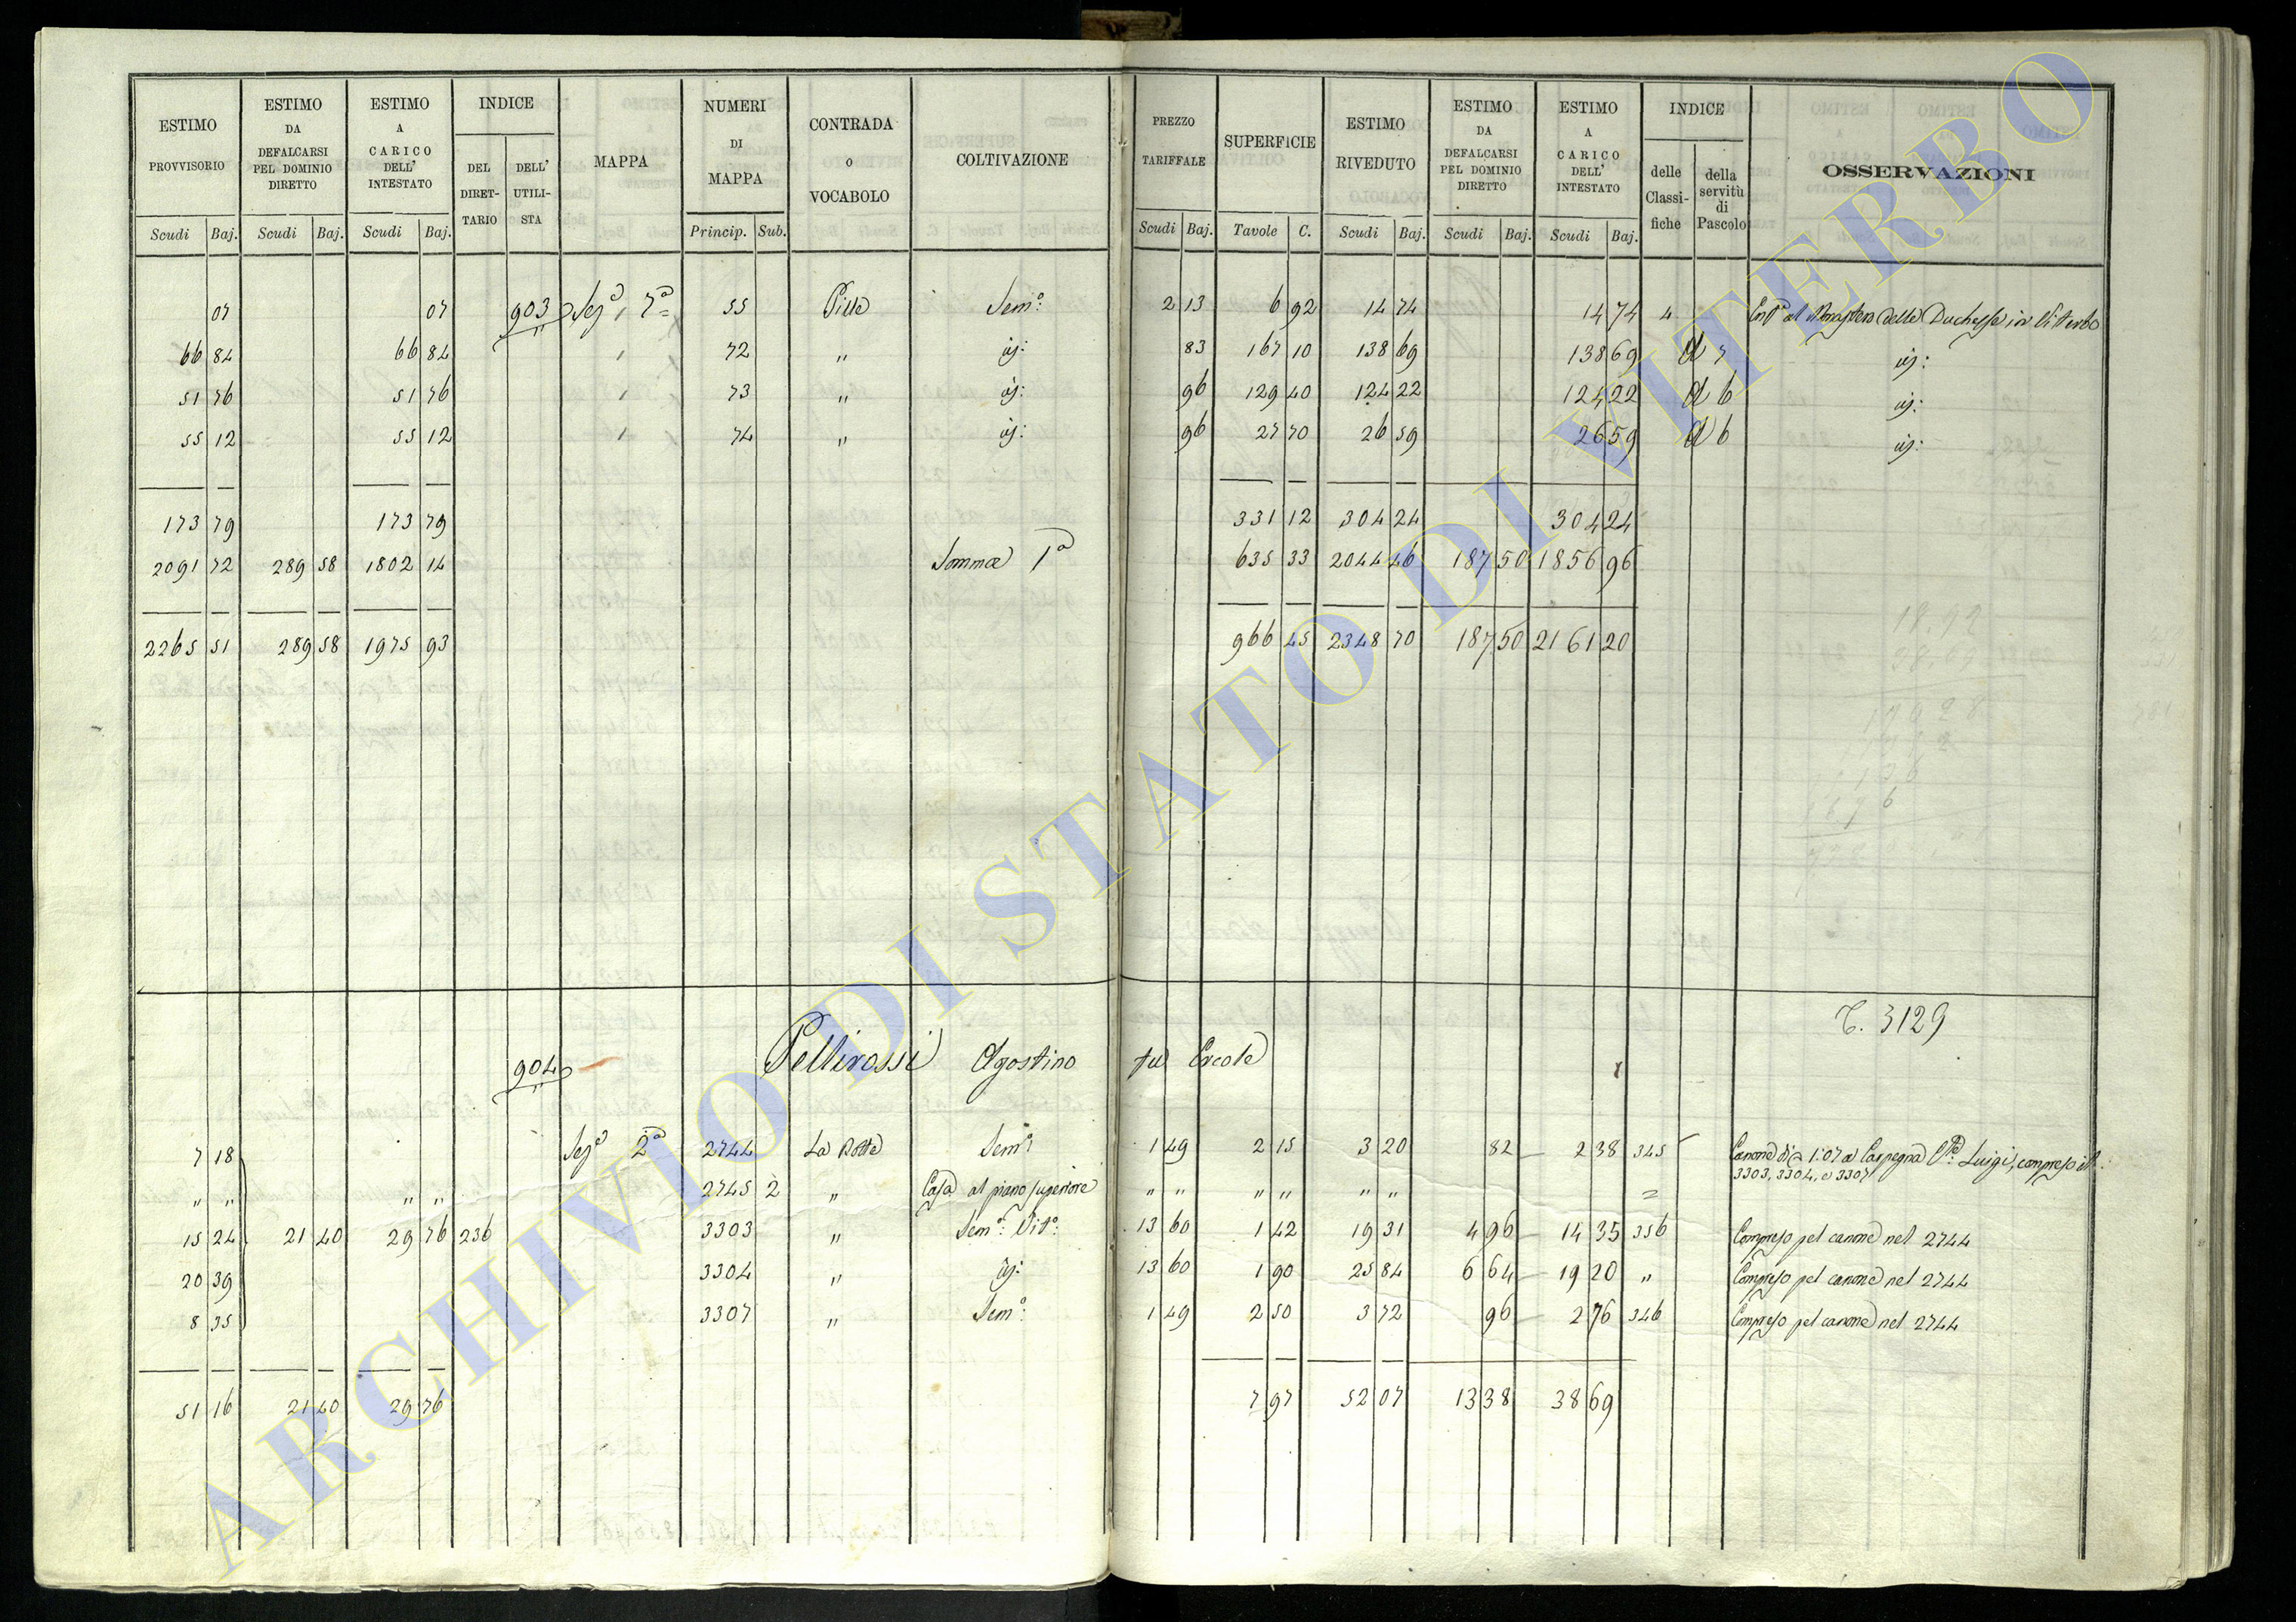 ESTIMO PROVVISORIO | ESTIMO DA DEFALCARSI PEL DOMINIO DIRETTO | ESTIMO A CARICO DELL' INTESTATO | INDICE DEL DIRET-TARIO | DELL' UTILI-STA | MAPPA | NUMERI DI MAPPA | CONTRADA O VOCABOLO | COLTIVAZIONE | PREZZO TARIFFALE | SUPERFICIE | ESTIMO RIVEDUTO | ESTIMO DA DEFALCARSI PEL DOMINIO DIRETTO | ESTIMO A CARICO DELL' INTESTATO | INDICE delle Classi-fiche | della servitù di Pascolo | OSSERVAZIONI
Scudi Baj. | Scudi Baj. | Scudi Baj. | Princip. Sub. | Scudi Baj. | Tavole C. | Scudi Baj. | Scudi Baj. | Scudi Baj.
07 | 07 | 903 | Seg.a 7a | 55 | Pille | Sem.o | 2 13 | 6 92 | 14 74 | 14 74 | 4 | al Monastero delle Duchesse in Viterbo
66 84 | 66 84 | 72 | " | id: | 83 | 167 10 | 138 69 | 138 69 | d 7 | id:
51 76 | 51 76 | 73 | " | id: | 96 | 129 40 | 124 22 | 124 22 | d 6 | id:
55 12 | 55 12 | 74 | " | id: | 96 | 27 70 | 26 59 | 26 59 | d 6 | id:
173 79 | 173 79 | 331 12 | 304 24 | 304 24
2091 72 | 289 58 | 1802 14 | Somma 1a | 635 33 | 2044 46 | 187 50 | 1856 96
2265 51 | 289 58 | 1975 93 | 966 45 | 2348 70 | 187 50 | 2161 20
T. 3129
904 | Pellirossi Agostino fu Ercole
7 18 | Seg.a 2a | 2744 | La Botte | Sem.o | 1 49 | 2 15 | 3 20 | 82 | 2 38 | 345 | Canone di 1:07 a Carpegna Luigi, compreso il
3303, 3304, e 3307
" " | " " | 2745 2 | " | Casa al piano superiore | " " | " " | " " | =
15 24 | 21 40 | 29 76 | 236 | 3303 | " | Sem.o Vit.o | 13 60 | 1 42 | 19 31 | 4 96 | 14 35 | 356 | Compreso pel canone nel 2744
20 39 | 3304 | " | id: | 13 60 | 1 90 | 25 84 | 6 64 | 19 20 | " | Compreso pel canone nel 2744
8 35 | 3307 | " | Sem.o | 1 49 | 2 50 | 3 72 | 96 | 2 76 | 346 | Compreso pel canone nel 2744
51 16 | 21 40 | 29 76 | 7 97 | 52 07 | 13 38 | 38 69
ARCHIVIO DI STATO DI VITERBO